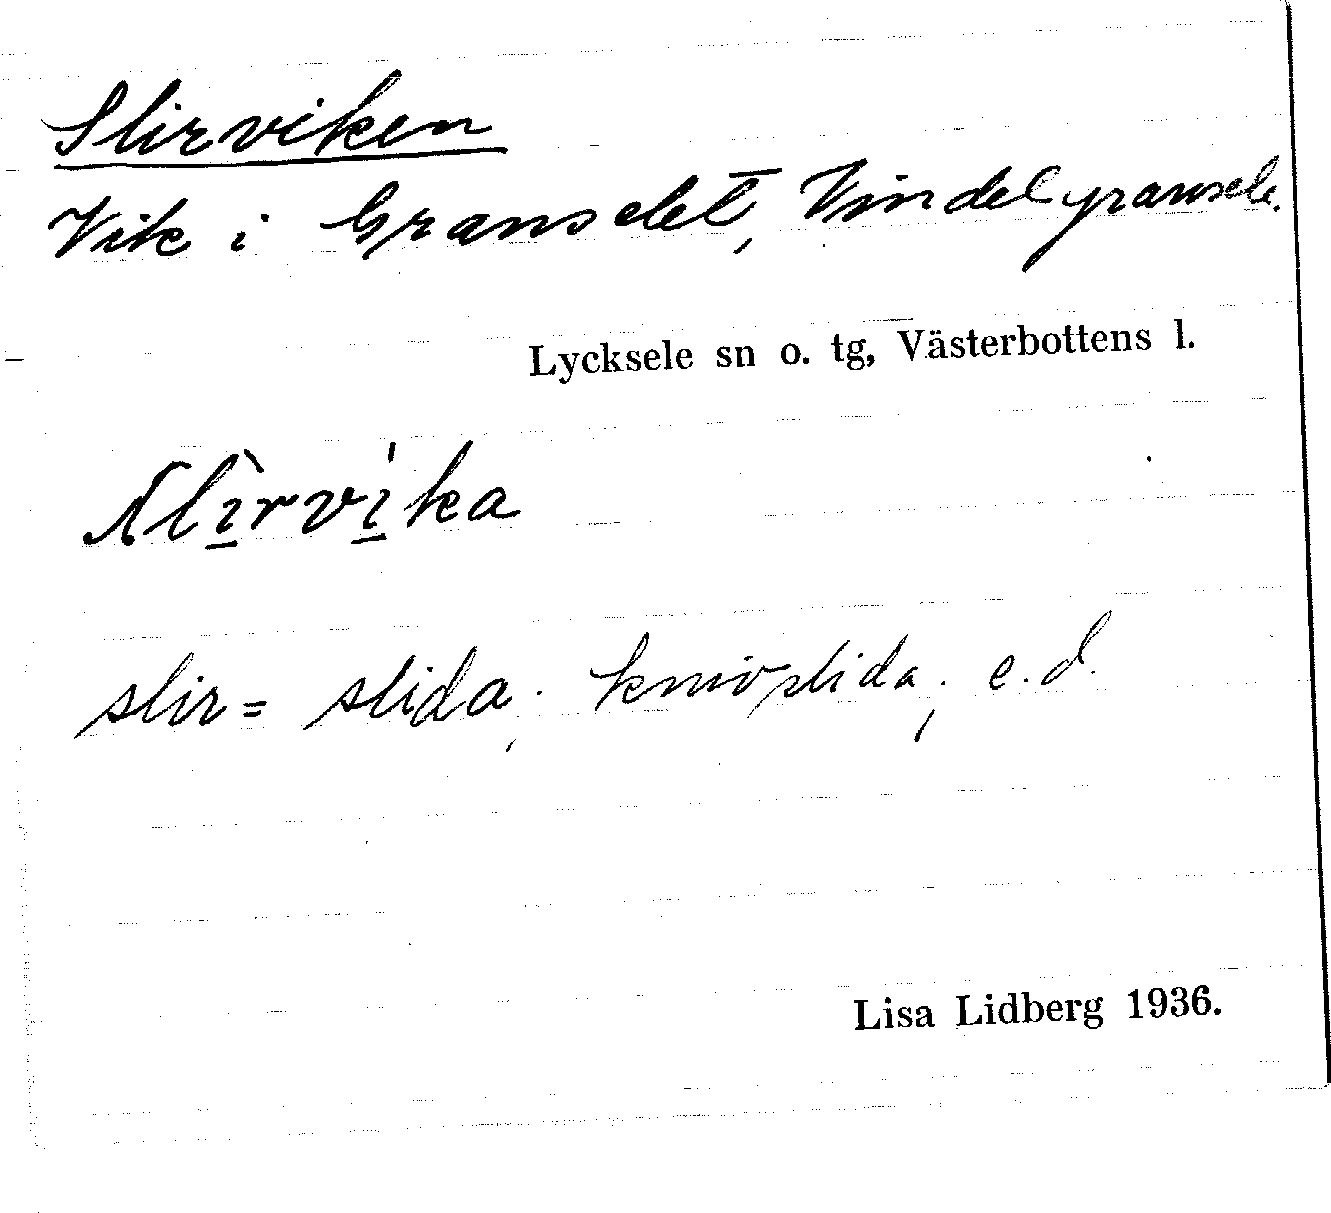 Slirviken
Vik i Granselet, Vindelgransele.
Lycksele sn o. tg, Västerbottens l.
slì̱rvi̱ˈka
slir = slida; knivslida; e.d.
Lisa Lidberg 1936.